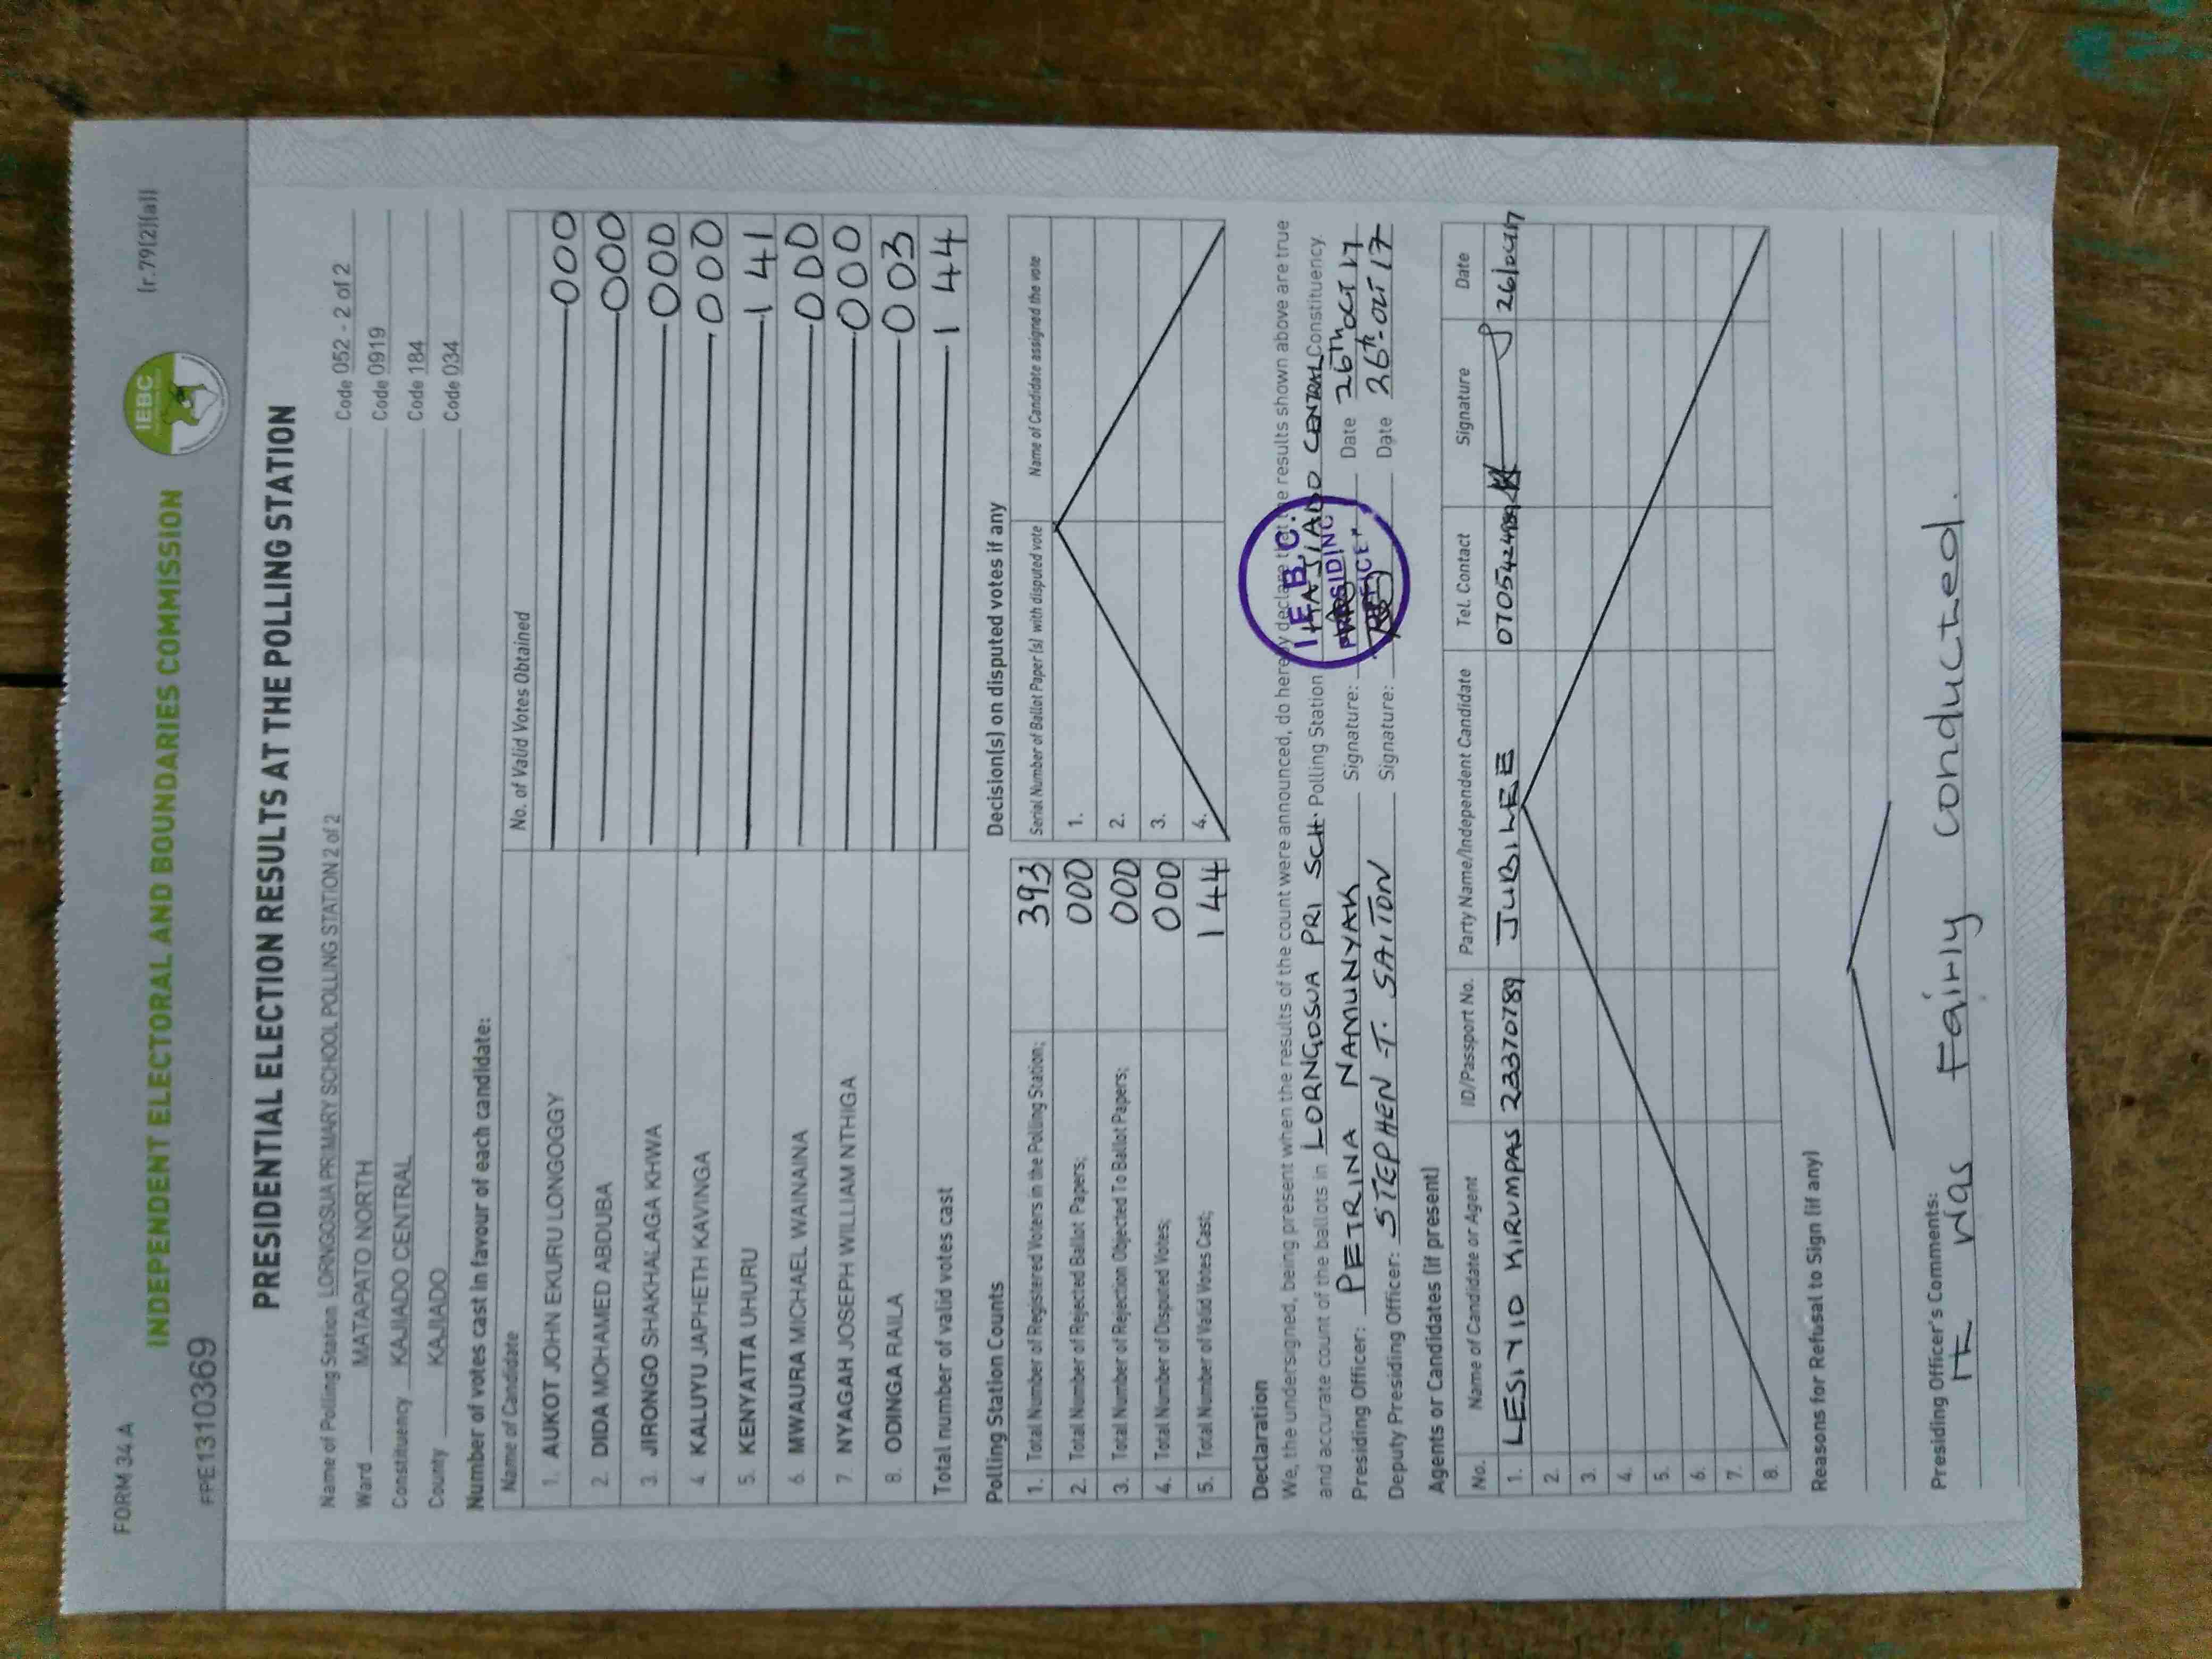 FORM 34 A
(r.79(2)(a))
INDEPENDENT ELECTORAL AND BOUNDARIES COMMISSION
IEBC
PPE1310369
PRESIDENTIAL ELECTION RESULTS AT THE POLLING STATION
Name of Polling Station LORNGOSUA PRIMARY SCHOOL POLLING STATION 2 of 2 Code 052 - 2 of 2
Ward MATAPATO NORTH Code 0919
Constituency KAJIADO CENTRAL Code 184
County KAJIADO Code 034
Number of votes cast in favour of each candidate:
Name of Candidate No. of Valid Votes Obtained
1. AUKOT JOHN EKURU LONGOGGY 000
2. DIDA MOHAMED ABDUBA 000
3. JIRONGO SHAKHALAGA KHWA 000
4. KALUYU JAPHETH KAVINGA 000
5. KENYATTA UHURU 141
6. MWAURA MICHAEL WAINAINA 000
7. NYAGAH JOSEPH WILLIAM NTHIGA 000
8. ODINGA RAILA 003
Total number of valid votes cast 144
Polling Station Counts
1. Total Number of Registered Voters in the Polling Station; 393
2. Total Number of Rejected Ballot Papers; 000
3. Total Number of Rejection Objected To Ballot Papers; 000
4. Total Number of Disputed Votes; 000
5. Total Number of Valid Votes Cast; 144
Decision(s) on disputed votes if any
Serial Number of Ballot Paper (s) with disputed vote Name of Candidate assigned the vote
1.
2.
3.
4.
Declaration
We, the undersigned, being present when the results of the count were announced, do hereby declare that the results shown above are true
and accurate count of the ballots in LORNGOSUA PRI SCH. Polling Station KAJIADO CENTRAL Constituency.
Presiding Officer: PETRINA NAMUNYAK Signature: Date 26TH OCT 17
Deputy Presiding Officer: STEPHEN T. SAITON Signature: Date 26th-OCT 17
I.E.B.C.
PRESIDING
OFFICER
Agents or Candidates (if present)
No. Name of Candidate or Agent ID/Passport No. Party Name/Independent Candidate Tel. Contact Signature Date
1. LESIYIO KIRUMPAS 23370789 JUBILEE
2.
3.
4.
5.
6.
7.
8.
Reasons for Refusal to Sign (if any)
Presiding Officer's Comments:
It was fairly conducted.